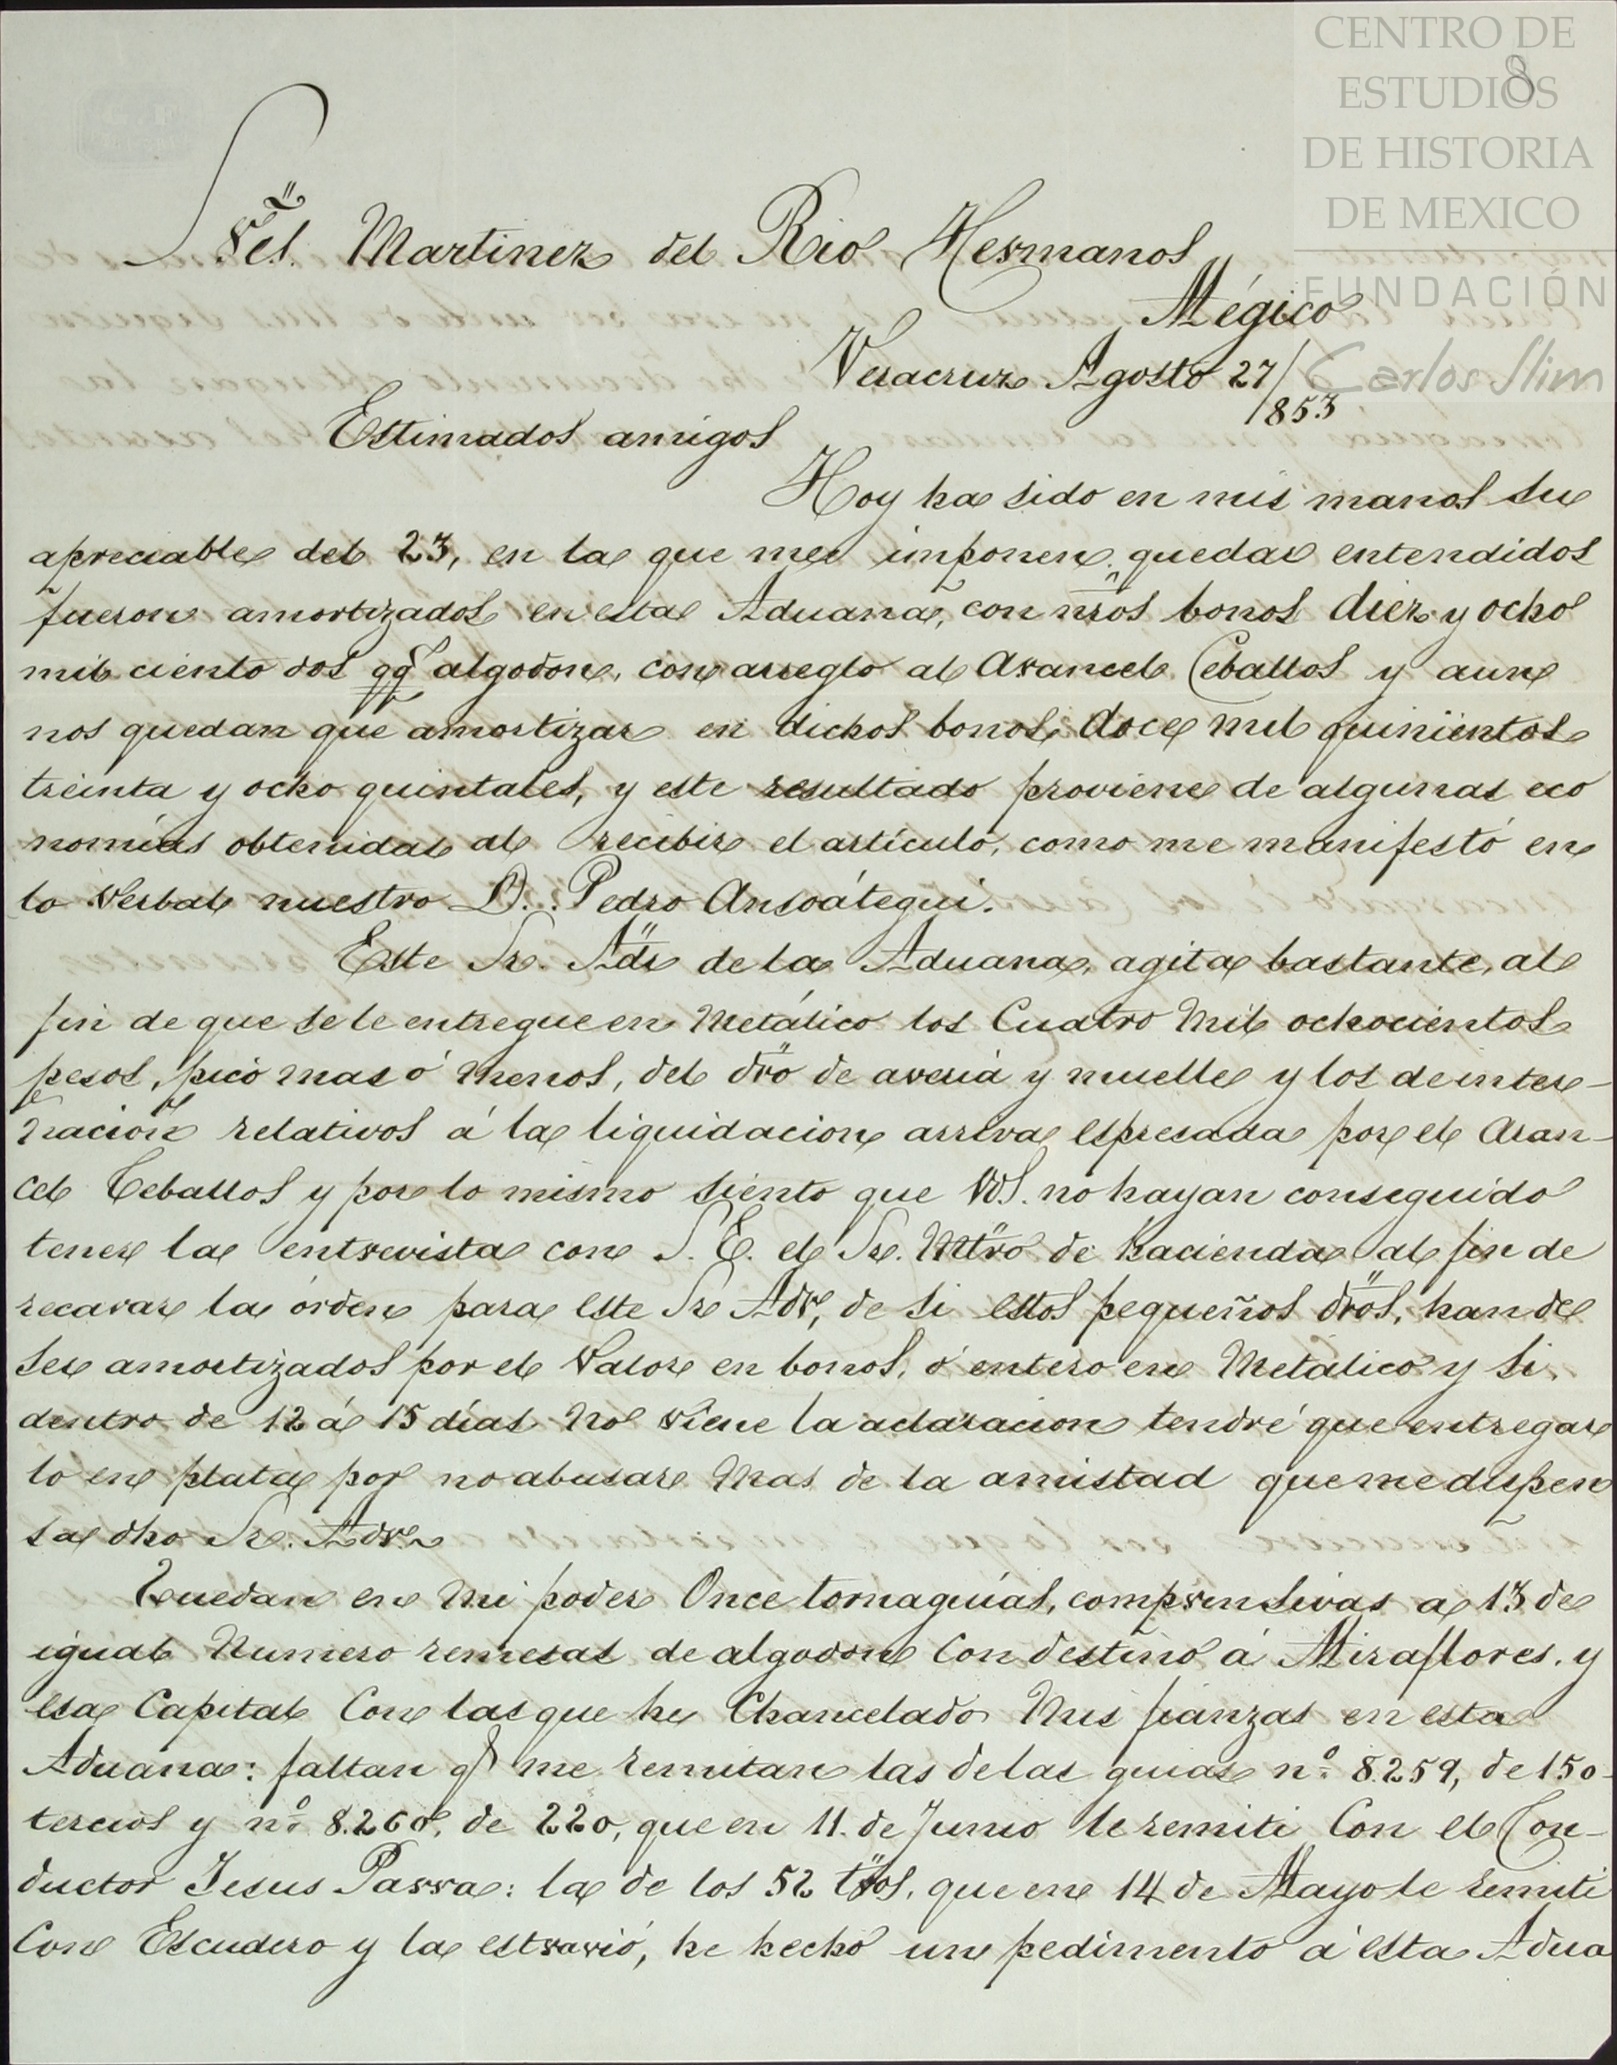 CENTRO DE
ESTUDIOS
DE HISTORIA
DE MEXICO
FUNDACIÓN
Carlos Slim
8
Sres. Martinez del Rio Hermanos
Mégico
Veracruz Agosto 27/853
Estimados amigos
Hoy ha sido en mis manos su
apreciable del 23, en la que me imponen quedar entendidos
fueron amortizados en esta Aduana, con nros bonos diez y ocho
mil ciento dos qqs algodon, con arreglo al Arancel Ceballos y aun
nos quedan que amortizar en dichos bonos, doce mil quinientos
treinta y ocho quintales, y este resultado proviene de algunas eco
nomías obtenidas al recibir el artículo, como me manifestó en
lo verbal nuestro D. Pedro Ansoátegui.
Este Sr. Adr de la Aduana, agita bastante, al
fin de que se le entregue en Metálico los Cuatro Mil ochocientos
pesos, pico mas ó menos, del dro de avería y muelle y los de inter-
nación relativos á la liquidacion arriva espresada por el Aran-
cel Ceballos y por lo mismo siento que VdS. no hayan conseguido
tener la entrevista con S. E. el Sr. Mtro de hacienda al fin de
recavar la órden para este Sr Adr, de si estos pequeños dros, han de
ser amortizados por el valor en bonos, ó entero en Metálico y si
dentro de 12 á 15 días no viene la aclaracion tendré que entregar
lo en plata por no abusar mas de la amistad que me dispen
sa dho Sr. Adr.
Quedan en mi poder Once tornaguías, comprensivas a 13 de
igual Numero remesas de algodon con destino á Miraflores. y
esa Capital Con las que he Chancelado Mis fianzas en esta
Aduana: faltan q me remitan las de las guias nº 8.259, de 150
tercios y nº 8.260, de 220, que en 11 de Junio le remiti Con el Con-
ductor Jesus Parra: la de los 52 tros, que en 14 de Mayo le remiti
Con Escudero y la estravió, he hecho un pedimento á esta Adua